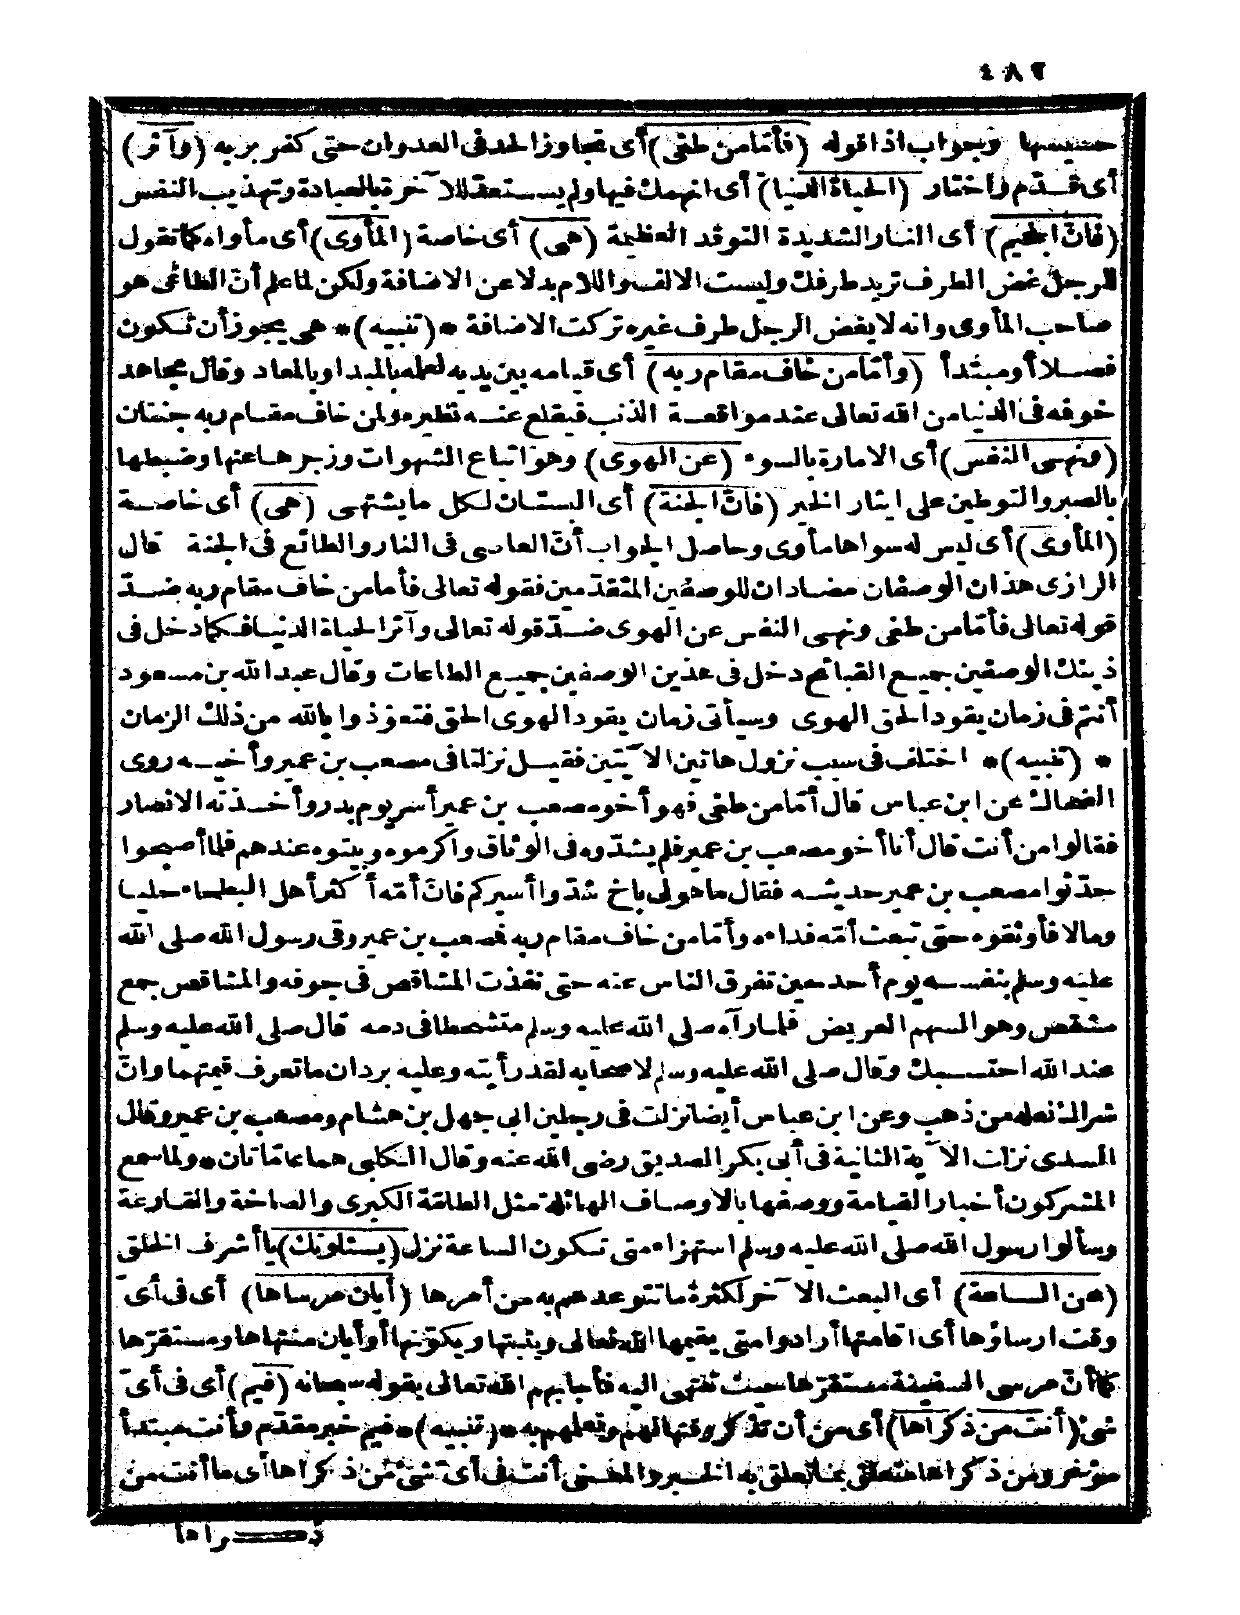 ٤٨٢
حسيسها وجواب اذا قوله (فأمّا من طغى) أى تجاوز الحد فى العدوان حتى كفر بربه (وآثر)
أى قدّم واختار (الحياة الدنيا) أى انهمك فيها ولم يستعدّ للآخرة بالعبادة وتهذيب النفس
(فانّ الجحيم) أى النار الشديدة التوقد العظيمة (هى) أى خاصة (المأوى) أى مأواه كما تقول
للرجل غض الطرف تريد طرفك وليست الالف واللام بدلا عن الاضافة ولكن لما علم أنّ الطاغى هو
صاحب المأوى وانه لا يغض الرجل طرف غيره تركت الاضافة * (تنبيه) * هى يجوز أن تكون
فصلا أو مبتدأ (وأمّا من خاف مقام ربه) أى قيامه بين يديه لعلمه بالمبدا وبالمعاد وقال مجاهد
خوفه فى الدنيا من الله تعالى عند مواقعة الذنب فيقلع عنه نظيره ولمن خاف مقام ربه جنتان
(ونهى النفس) أى الامارة بالسوء (عن الهوى) وهو اتباع الشهوات وزجرها عنها وضبطها
بالصبر والتوطين على ايثار الخير (فانّ الجنة) أى البستان لكل ما يشتهى (هى) أى خاصة
(المأوى) أى ليس له سواها مأوى وحاصل الجواب أنّ العاصى فى النار والطائع فى الجنة قال
الرازى هذان الوصفان مضادان للوصفين المتقدّمين فقوله تعالى فأما من خاف مقام ربه ضدّ
قوله تعالى فأمّا من طغى ونهى النفس عن الهوى ضدّ قوله تعالى وآثر الحياة الدنيا فكما دخل فى
ذينك الوصفين جميع القبائح دخل فى هذين الوصفين جميع الطاعات وقال عبد الله بن مسعود
أنتم فى زمان يقود الحق الهوى وسيأتى زمان يقود الهوى الحق فتعوّذوا بالله من ذلك الزمان
* (تنبيه) * اختلف فى سبب نزول هاتين الآيتين فقيل نزلتا فى مصعب بن عمير وأخيه روى
الضحاك عن ابن عباس قال أمّا من طغى فهو أخو مصعب بن عمير أسر يوم بدر وأخذته الانصار
فقالوا من أنت قال أنا أخو مصعب بن عمير فلم يشدّوه فى الوثاق وأكرموه وبيتوه عندهم فلما أصبحوا
حدّثوا مصعب بن عمير حديثه فقال ما هو لى بأخ شدّوا أسيركم فانّ أمّه أكثر أهل البطحاء حليا
ومالا فأوثقوه حتى تبعث أمّه فداءه وأمّا من خاف مقام ربه فمصعب بن عمير وقى رسول الله صلى الله
عليه وسلم بنفسه يوم أحد حين تفرق الناس عنه حتى نفذت المشاقص فى جوفه والمشاقص جمع
مشقص وهو السهم العريض فلما رآه صلى الله عليه وسلم متشحطا فى دمه قال صلى الله عليه وسلم
عند الله احتسبك وقال صلى الله عليه وسلم لاصحابه لقد رأيته وعليه بردان ما تعرف قيمتهما وانّ
شراك نعله من ذهب وعن ابن عباس أيضا نزلت فى رجلين ابى جهل بن هشام ومصعب بن عمير وقال
السدى نزلت الآية الثانية فى أبى بكر الصديق رضى الله عنه وقال الكلبى هما عامّتان * ولما سمع
المشركون أخبار القيامة ووصفها بالاوصاف الهائلة مثل الطامّة الكبرى والصاخة والقارعة
وسألوا رسول الله صلى الله عليه وسلم استهزاء متى تكون الساعة نزل (يسئلونك) يا أشرف الخلق
(عن الساعة) أى البعث الآخر لكثرة ما تتوعدهم به من أمرها (أيان مرساها) أى فى أىّ
وقت ارساؤها أى اقامتها أرادوا متى يقيمها الله تعالى ويثبتها ويكوّنها أو أيان منتهاها ومستقرّها
كما أنّ مرسى السفينة مستقرّها حيث تنتهى اليه فأجابهم الله تعالى بقوله سبحانه (فيم) أى فى أىّ
شئ (أنت من ذكراها) أى من أن تذكر وقتها لهم وتعلمهم به * (تنبيه) * فيم خبر مقدّم وأنت مبتدأ
مؤخر ومن ذكراها متعلق بما تعلق به الخبر والمعنى أنت فى أىّ شئ من ذكراها أى ما أنت من
ذكراها